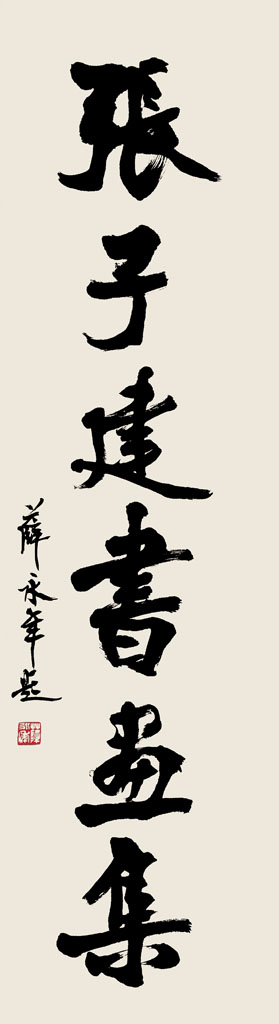 張子建書畫集
薛永年題